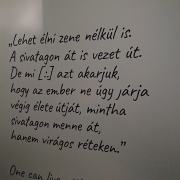 „Lehet élni zene nélkül is.
A sivatagon át is vezet út.
De mi [:] azt akarjuk,
hogy az ember ne úgy járja
végig élete útját, mintha
sivatagon menne át,
hanem virágos réteken.”
One can live